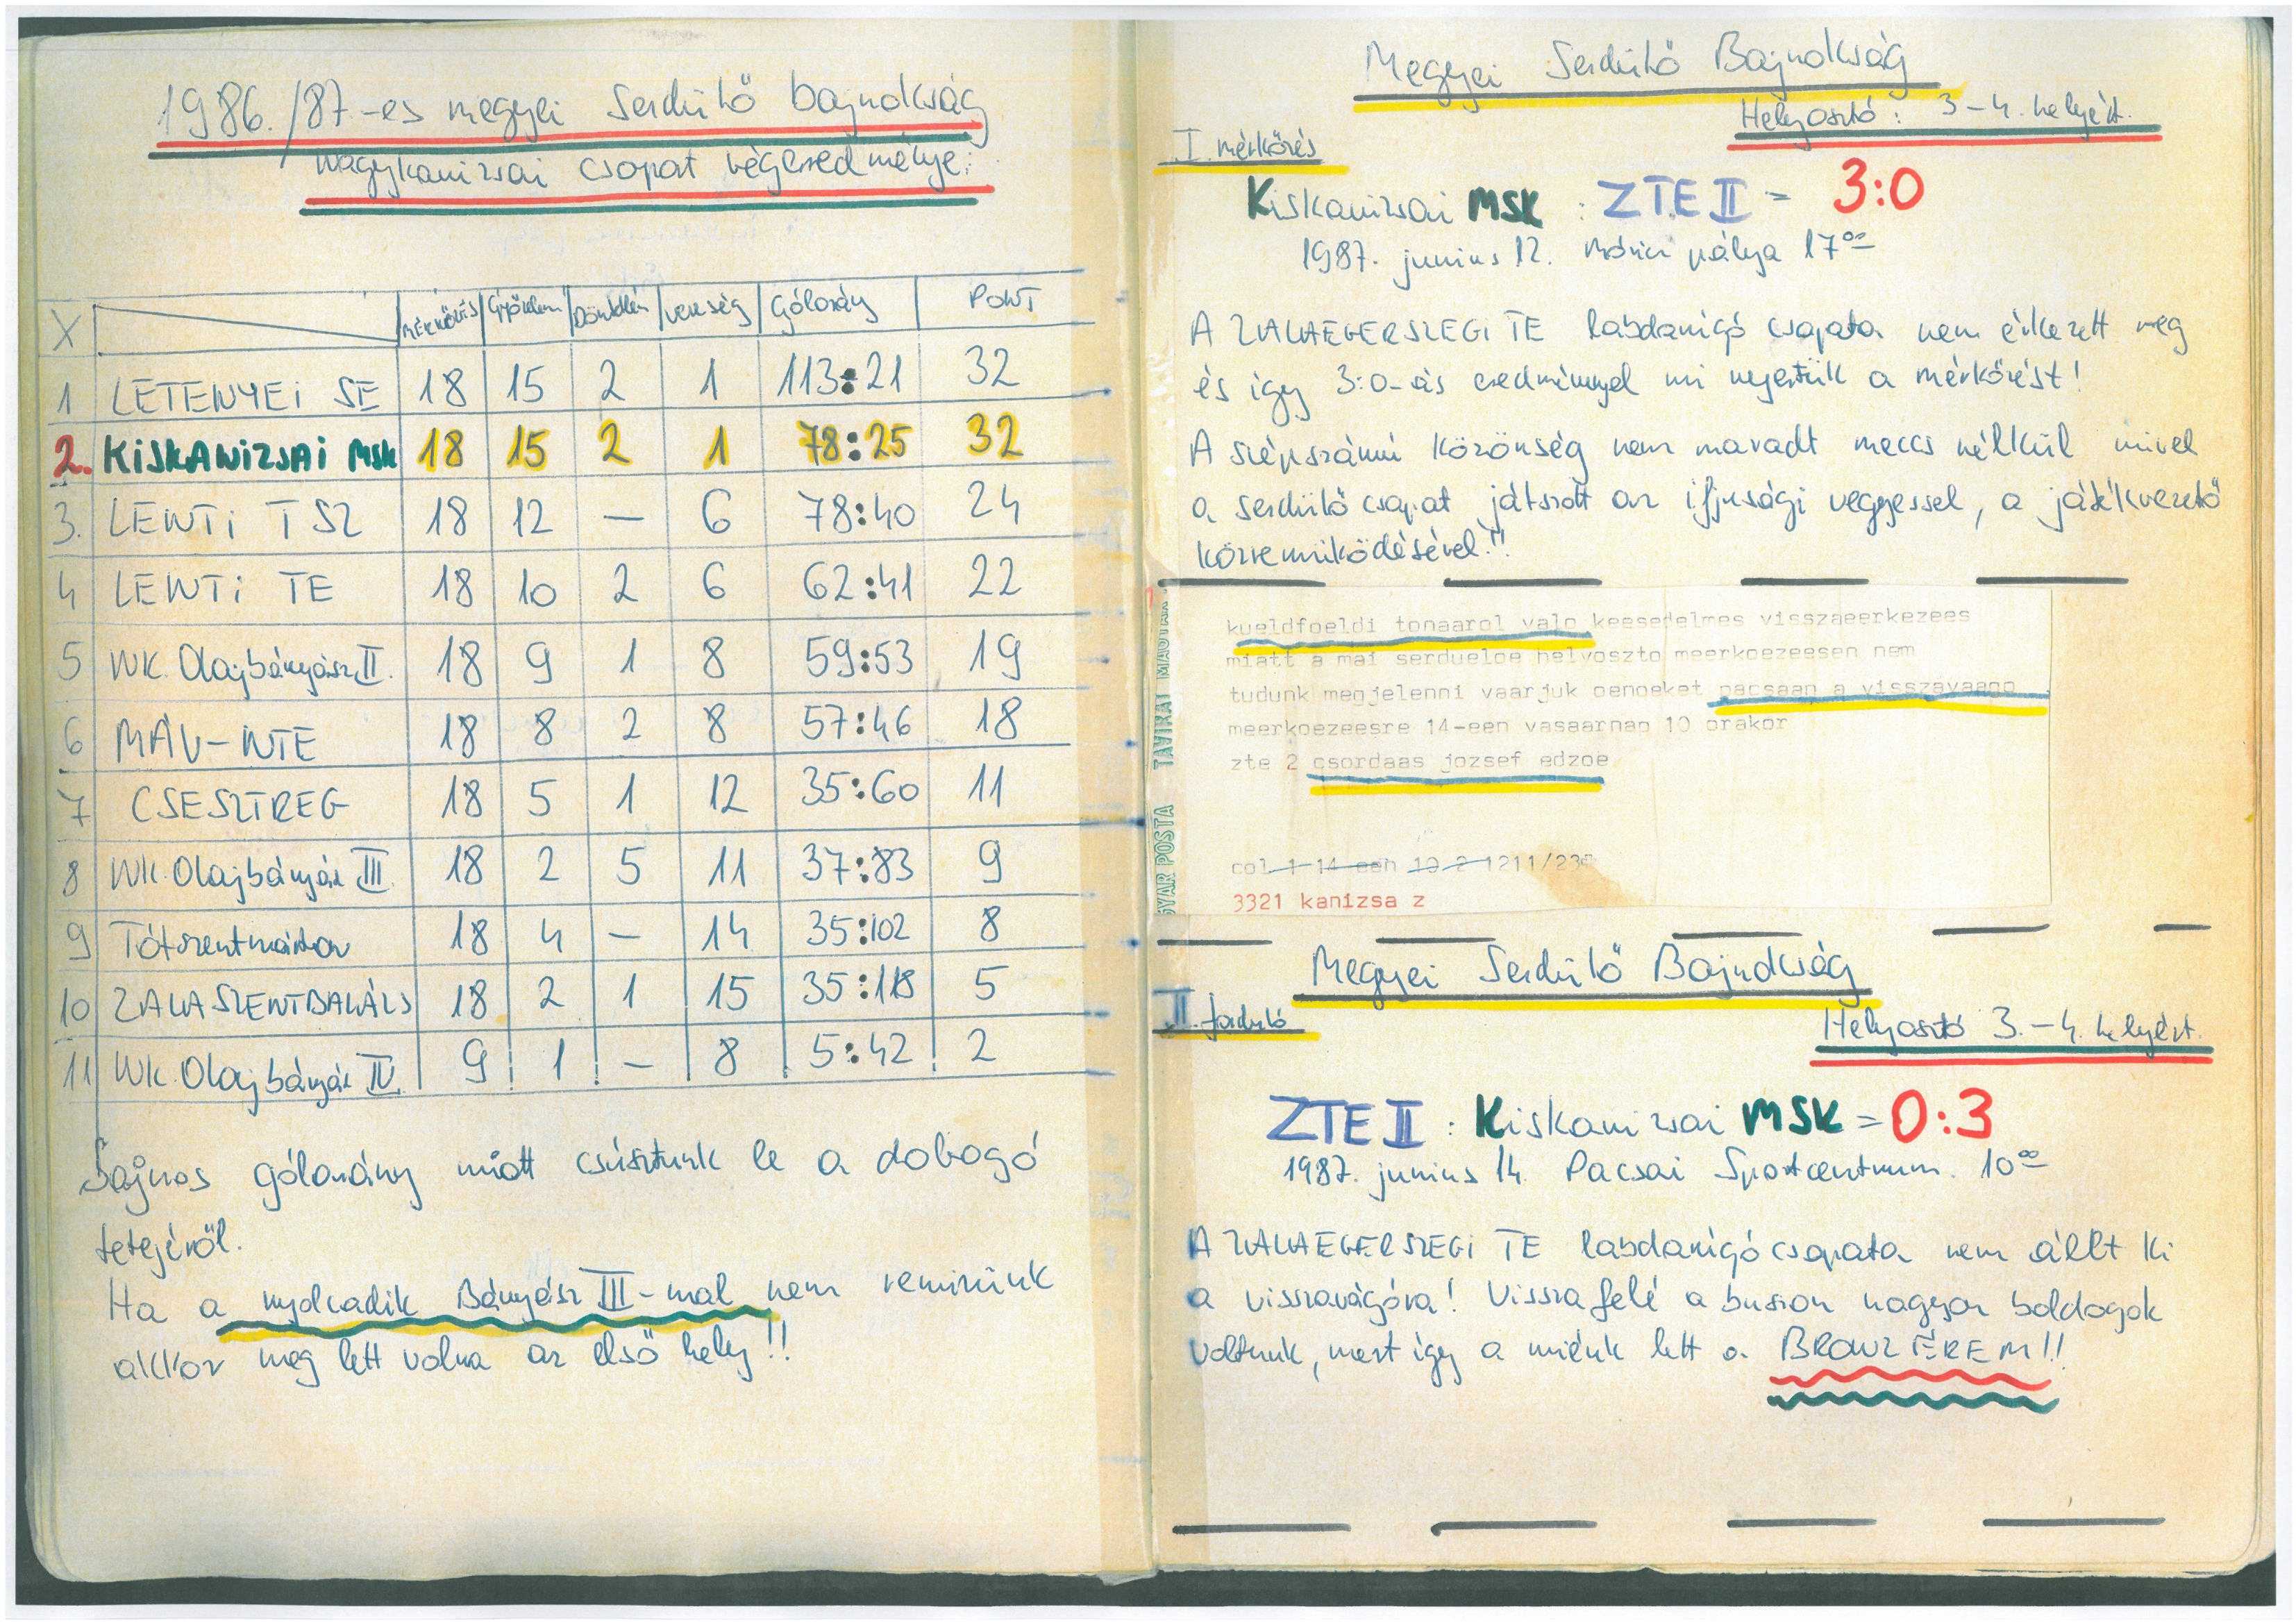 1986./87-es megyei Serdülő bajnokság
nagykanizsai csoport végeredménye:
X MÉRKŐZÉS Győzelem Döntetlen vereség Gólarány PONT
1 LETENYEI SE 18 15 2 1 113:21 32
2. KISKANIZSAI MSK 18 15 2 1 78:25 32
3. LENTI TSZ 18 12 — 6 78:40 24
4 LENTI TE 18 10 2 6 62:41 22
5 NK. Olajbányász II. 18 9 1 8 59:53 19
6 MÁV-NTE 18 8 2 8 57:46 18
7 CSESZTREG 18 5 1 12 35:60 11
8 NK. Olajbányász III. 18 2 5 11 37:83 9
9 Tótszentmárton 18 4 — 14 35:102 8
10 ZALASZENTBALÁZS 18 2 1 15 35:118 5
11 NK. Olajbányász IV. 9 1 — 8 5:42 2
Sajnos gólarány miatt csúsztunk le a dobogó
tetejéről.
Ha a nyolcadik Bányász III-mal nem remizünk
akkor meg lett volna az első hely!!
Megyei Serdülő Bajnokság
Helyosztó: 3-4. helyért.
I. mérkőzés
Kiskanizsai MSK : ZTE II = 3:0
1987. junius 12. Móricz pálya 17⁰⁰
A ZALAEGERSZEGI TE labdarúgó csapata nem érkezett meg
és igy 3:0-ás eredménnyel mi nyertük a mérkőzést!
A szépszámú közönség nem maradt meccs nélkül mivel
a serdülő csapat játszott az ifjusági vegyessel, a játékvezető
közreműködésével!!
kueldfoeldi tonaarol valo keesedelmes visszaeerkezees
miatt a mai serdueloe helyoszto meerkoezeesen nem
tudunk megjelenni vaarjuk oenoeket pacsaan a visszavaago
meerkoezeesre 14-een vasaarnap 10 orakor
zte 2 csordaas jozsef edzoe
col 1 14-een 10 2 1211/230
3321 kanizsa z
GYAR POSTA TÁVIRAT MAGYAR
Megyei Serdülő Bajnokság
II. forduló
Helyosztó 3.-4. helyért.
ZTE II : Kiskanizsai MSK = 0:3
1987. junius 14. Pacsai Sportcentrum. 10⁰⁰
A ZALAEGERSZEGI TE labdarúgó csapata nem állt ki
a visszavágóra! Visszafelé a buszon nagyon boldogok
voltunk, mert igy a miénk lett a BRONZÉREM!!